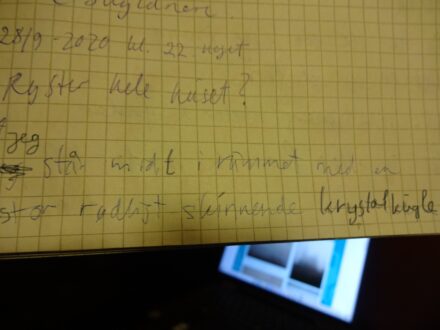 28/9-2020 kl. 22 noget
Ryster hele huset?
jeg
står midt i rummet med en
stor skinnende krystalkugle